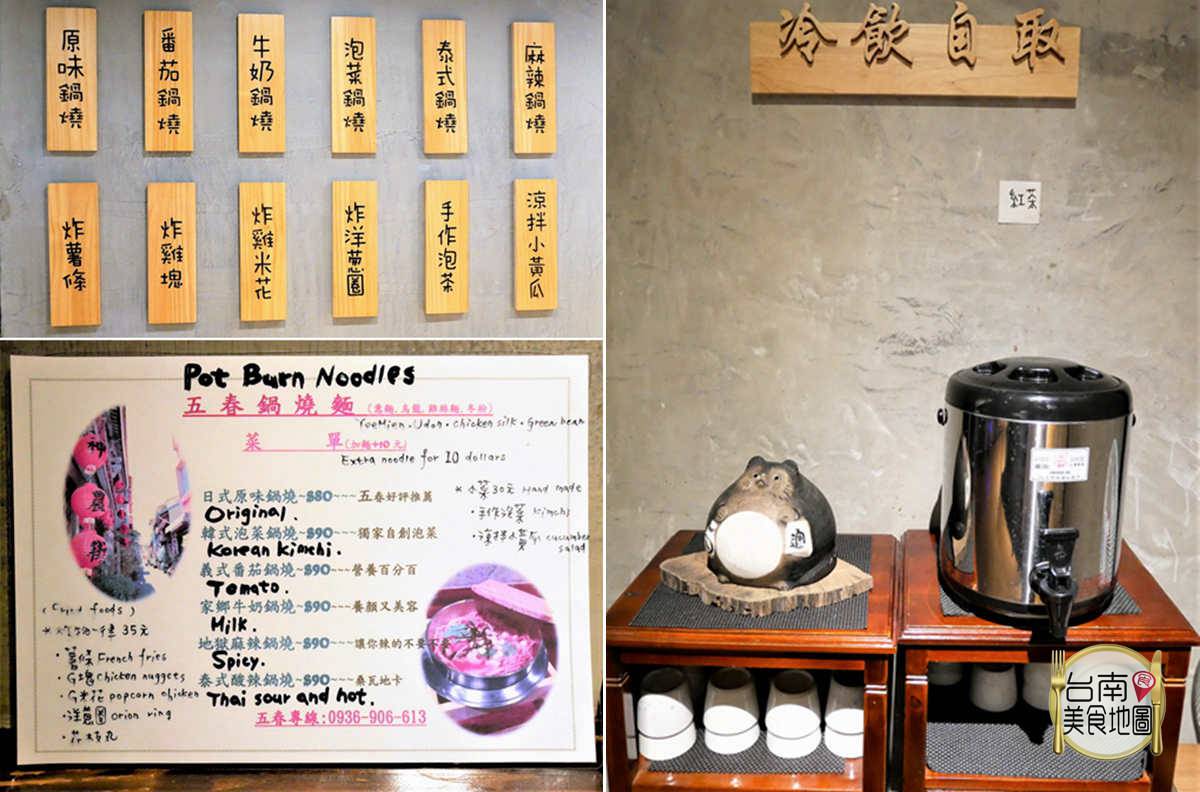 原味鍋燒
番茄鍋燒
牛奶鍋燒
泡菜鍋燒
泰式鍋燒
麻辣鍋燒
炸薯條
炸雞塊
炸雞米花
炸洋蔥圈
手作泡菜
涼拌小黃瓜
冷飲自取
紅茶
Pot Burn Noodles
五春鍋燒麵(意麵.烏龍.雞絲麵.冬粉)
YeeMien.Udon.chicken silk.Green bean
菜 單(加麵+10元)
Extra noodle for 10 dollars
日式原味鍋燒~$80~~~五春好評推薦
Original.
韓式泡菜鍋燒~$90~~~獨家自創泡菜
Korean Kimchi.
義式番茄鍋燒~$90~~~營養百分百
Tomato.
家鄉牛奶鍋燒~$90~~~養顏又美容
Milk.
地獄麻辣鍋燒~$90~~~讓你辣的不要不
Spicy.
泰式酸辣鍋燒~$90~~~桑瓦地卡
Thai sour and hot.
五春專線:0936-906-613
*小菜30元 Hand made
·手作泡菜 Kimchi
cucumber
salad
神農街
foods)
35元
·薯條 French fries
·G塊 Chicken nuggets
·G米花 popcorn chicken
·洋蔥圈 onion ring
台南
食
美食地圖